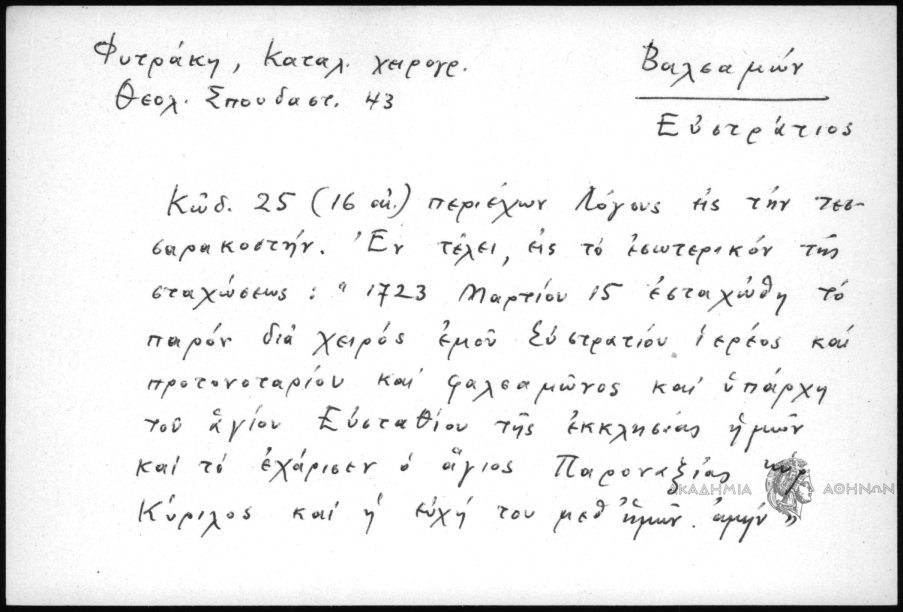 Φυτράκη, Καταλ. χειρογρ.
Θεολ. Σπουδαστ. 43
Βαλσαμών
Εὐστράτιος
Κῶδ. 25 (16 αἰ.) περιέχων Λόγους εἰς τὴν τεσ-
σαρακοστήν. Ἐν τέλει, εἰς τὸ ἐσωτερικόν τῆς
σταχώσεως: "1723 Μαρτίου 15 ἐσταχώθη τὸ
παρόν διὰ χειρός ἐμοῦ Εὐστρατίου ἱερέος καί
προτονοταρίου καί φαλσαμῶνος καί ὑπάρχη
τοῦ ἁγίου Εὐσταθίου τῆς ἐκκλησίας ἡμῶν
καί τὸ ἐχάρισεν ὁ ἅγιος Παροναξίας κύρ
Κύριλος καί ἡ εὐχή του μεθ' ἡμῶν. ἀμήν"
ΑΚΑΔΗΜΙΑ ΑΘΗΝΩΝ